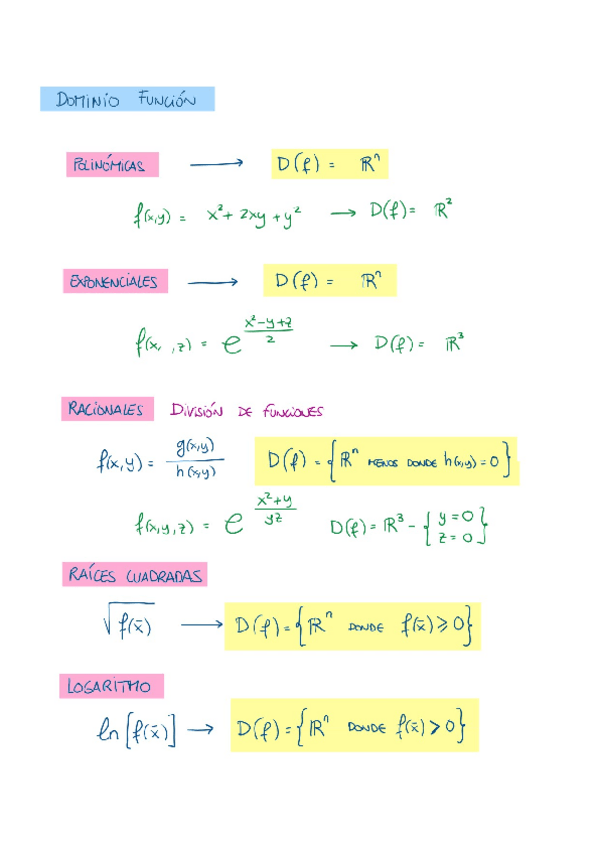 DOMINIO FUNCIÓN
POLINÓMICAS → D(f) = ℝⁿ
f(x,y) = x² + 2xy + y² → D(f) = ℝ²
EXPONENCIALES → D(f) = ℝⁿ
f(x, ,z) = e^((x²-y+z)/2) → D(f) = ℝ³
RACIONALES DIVISIÓN DE FUNCIONES
f(x,y) = g(x,y)/h(x,y) D(f) = {ℝⁿ MENOS DONDE h(x,y) = 0}
f(x,y,z) = e^((x²+y)/yz) D(f) = ℝ³ - {y = 0 z = 0}
RAÍCES CUADRADAS
√f(x̄) → D(f) = {ℝⁿ DONDE f(x̄) ⩾ 0}
LOGARITMO
ln[f(x̄)] → D(f) = {ℝⁿ DONDE f(x̄) > 0}